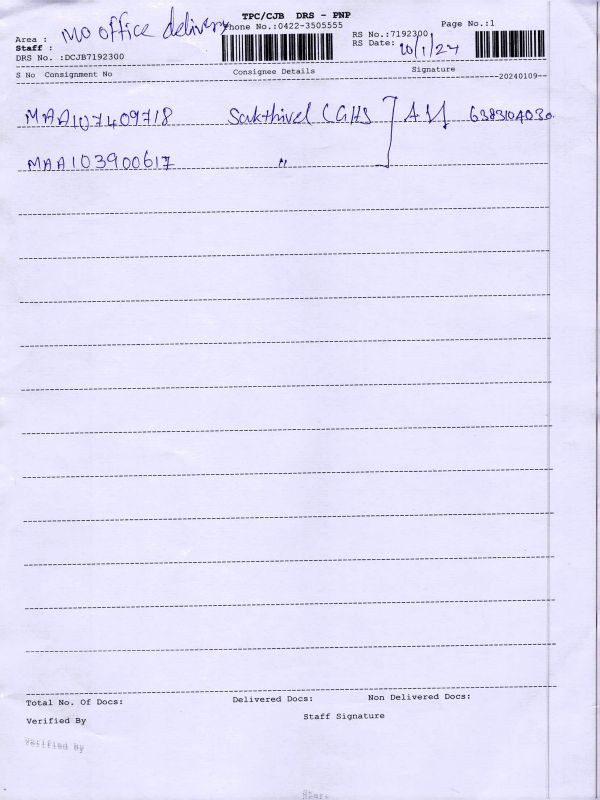 TPC/CJB DRS - PNP
MO office delivery
Phone No.:0422-3505555
Page No.:1
Area :
Staff :
DRS No. :DCJB7192300
RS No.:7192300
RS Date: 10/1/24
S No Consignment No Consignee Details Signature
20240109
MAA107409718 Sakthivel (GHS 6383104030
MAA103900617 "
Total No. Of Docs: Delivered Docs: Non Delivered Docs:
Verified By Staff Signature
Verified By